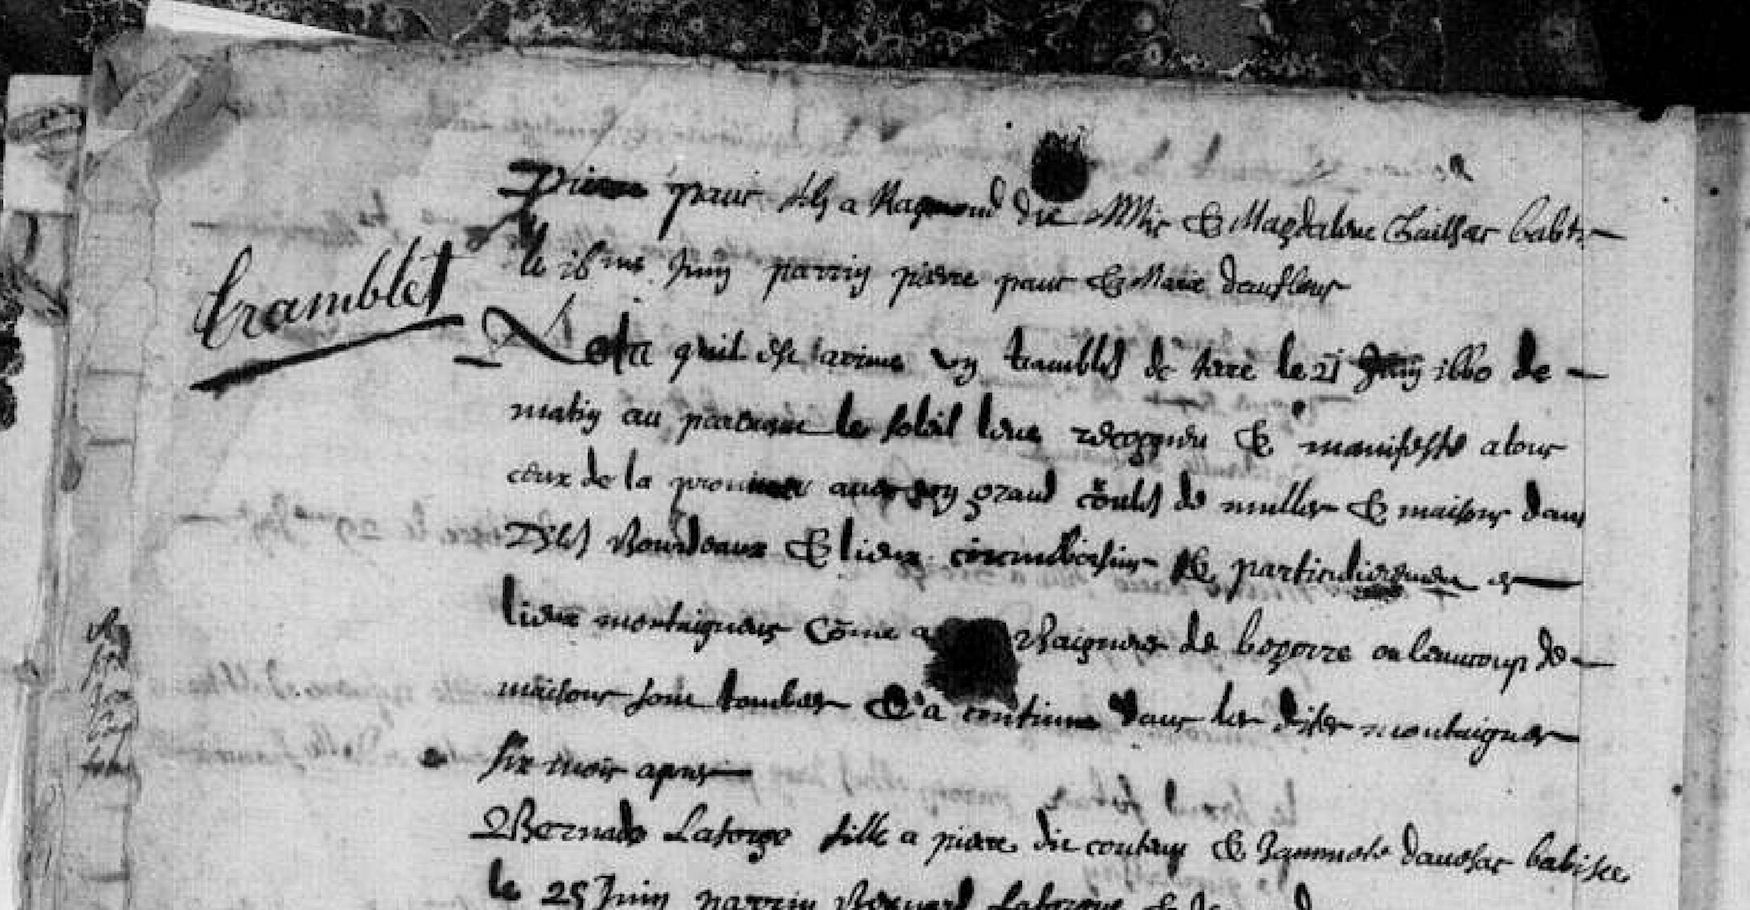 Pierre paur fils a Raymond dit Mic & Magdalene baptise
le 16me Juin parrin pierre paur & Marie
tramblet
Nota quil est arrive un tramblet de terre le 21 Juin 1660 de
matin au paravant le soleil leve recogneu & manifeste a tous
ceux de la province avec grand de mulles & maisons dans
Bourdeaux & lieux circumvoisins & particulierement es
lieux montaigneux come a Baigneres de begorre ou beaucoup de
maisons sont tombees & a continue dans les dites montaignes
six mois apres
Bernade Laforge fille a pierre dit & baptisee
le 25 Juin parrin Bernard Laforgue &